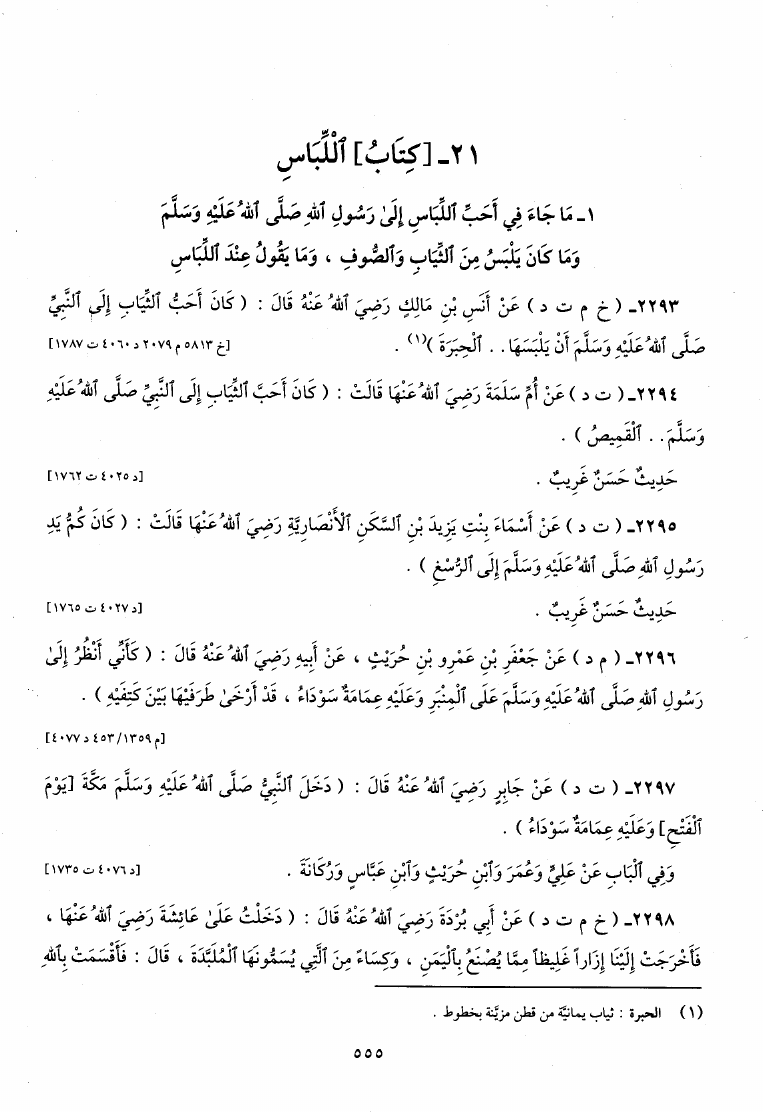 ٢١ـ [كِتَابُ] ٱللِّبَاسِ
١ـ مَا جَاءَ فِي أَحَبِّ ٱللِّبَاسِ إِلَىٰ رَسُولِ ٱللهِ صَلَّى ٱللهُ عَلَيْهِ وَسَلَّمَ
وَمَا كَانَ يَلْبَسُ مِنَ ٱلثِّيَابِ وَٱلصُّوفِ ، وَمَا يَقُولُ عِنْدَ ٱللِّبَاسِ
٢٢٩٣ـ ( خ م ت د ) عَنْ أَنَسِ بْنِ مَالِكٍ رَضِيَ ٱللهُ عَنْهُ قَالَ : ( كَانَ أَحَبُّ ٱلثِّيَابِ إِلَى ٱلنَّبِيِّ
صَلَّى ٱللهُ عَلَيْهِ وَسَلَّمَ أَنْ يَلْبَسَهَا . . ٱلْحِبَرَةَ )(١) . [خ ٥٨١٣ م ٢٠٧٩ د ٤٠٦٠ ت ١٧٨٧]
٢٢٩٤ـ ( ت د ) عَنْ أُمِّ سَلَمَةَ رَضِيَ ٱللهُ عَنْهَا قَالَتْ : ( كَانَ أَحَبَّ ٱلثِّيَابِ إِلَى ٱلنَّبِيِّ صَلَّى ٱللهُ عَلَيْهِ
وَسَلَّمَ . . ٱلْقَمِيصُ ) .
حَدِيثٌ حَسَنٌ غَرِيبٌ . [د ٤٠٢٥ ت ١٧٦٢]
٢٢٩٥ـ ( ت د ) عَنْ أَسْمَاءَ بِنْتِ يَزِيدَ بْنِ ٱلسَّكَنِ ٱلْأَنْصَارِيَّةِ رَضِيَ ٱللهُ عَنْهَا قَالَتْ : ( كَانَ كُمُّ يَدِ
رَسُولِ ٱللهِ صَلَّى ٱللهُ عَلَيْهِ وَسَلَّمَ إِلَى ٱلرُّسْغِ ) .
حَدِيثٌ حَسَنٌ غَرِيبٌ . [د ٤٠٢٧ ت ١٧٦٥]
٢٢٩٦ـ ( م د ) عَنْ جَعْفَرِ بْنِ عَمْرِو بْنِ حُرَيْثٍ ، عَنْ أَبِيهِ رَضِيَ ٱللهُ عَنْهُ قَالَ : ( كَأَنِّي أَنْظُرُ إِلَىٰ
رَسُولِ ٱللهِ صَلَّى ٱللهُ عَلَيْهِ وَسَلَّمَ عَلَى ٱلْمِنْبَرِ وَعَلَيْهِ عِمَامَةٌ سَوْدَاءُ ، قَدْ أَرْخَىٰ طَرَفَيْهَا بَيْنَ كَتِفَيْهِ ) .
[م ١٣٥٩/ ٤٥٣ د ٤٠٧٧]
٢٢٩٧ـ ( ت د ) عَنْ جَابِرٍ رَضِيَ ٱللهُ عَنْهُ قَالَ : ( دَخَلَ ٱلنَّبِيُّ صَلَّى ٱللهُ عَلَيْهِ وَسَلَّمَ مَكَّةَ [يَوْمَ
ٱلْفَتْحِ] وَعَلَيْهِ عِمَامَةٌ سَوْدَاءُ ) .
وَفِي ٱلْبَابِ عَنْ عَلِيٍّ وَعُمَرَ وَٱبْنِ حُرَيْثٍ وَٱبْنِ عَبَّاسٍ وَرُكَانَةَ . [د ٤٠٧٦ ت ١٧٣٥]
٢٢٩٨ـ ( خ م ت د ) عَنْ أَبِي بُرْدَةَ رَضِيَ ٱللهُ عَنْهُ قَالَ : ( دَخَلْتُ عَلَىٰ عَائِشَةَ رَضِيَ ٱللهُ عَنْهَا ،
فَأَخْرَجَتْ إِلَيْنَا إِزَاراً غَلِيظاً مِمَّا يُصْنَعُ بِٱلْيَمَنِ ، وَكِسَاءً مِنَ ٱلَّتِي يُسَمُّونَهَا ٱلْمُلَبَّدَةَ ، قَالَ : فَأَقْسَمَتْ بِٱللهِ
(١) الحبرة : ثياب يمانيَّة من قطن مزيَّنة بخطوط .
٥٥٥